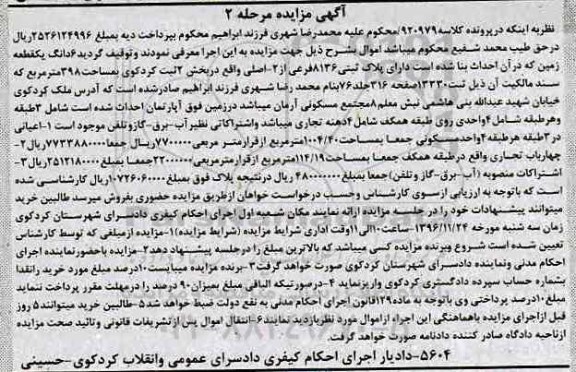 آگهی مزایده مرحله ۲
نظریه اینکه درپرونده کلاسه۹۲۰۹۷۹/محکوم علیه محمدرضا شهری فرزند ابراهیم محکوم بپرداخت دیه بمبلغ ۲۵۲۶۱۲۴۹۹۶ریال
درحق طیب محمد شفیع محکوم میباشد اموال بشرح ذیل جهت مزایده به این اجرا معرفی نمودند وتوقیف گردید۶دانگ یکقطعه
زمین که درآن احداث بنا شده است دارای پلاک ثبتی۸۱۳۶فرعی از۲-اصلی واقع دربخش ۲ثبت کردکوی بمساحت۳۹۸مترمربع که
سند مالکیت آن ذیل ثبت۱۳۲۳۰صفحه ۳۱۶جلد۷۶بنام محمد رضا شهری فرزند ابراهیم صادرشده است که آدرس ملک کردکوی
خیابان شهید عبدالله بنی هاشمی نبش معلم۸مجتمع مسکونی آرمان میباشد درزمین فوق آپارتمان احداث شده است شامل ۳طبقه
وهرطبقه شامل۴واحدی روی طبقه همکف شامل۴دهنه تجاری میباشد واشتراکاتی نظیرآب-برق-گازوتلفن موجود است ۱-اعیانی
در۳طبقه هرطبقه۴واحدمسکونی جمعا بمساحت۱۰۰۴/۴۰مترمربع ازقرارمتر مربعی۷۷۰۰۰۰۰ریال جمعا۷۷۳۳۸۸۰۰۰۰ریال۲-
چهارباب تجاری واقع درطبقه همکف جمعا بمساحت۱۱۴/۱۹مترمربع ازقرارمترمربعی۲۲۰۰۰۰۰۰جمعابمبلغ۲۵۱۲۱۸۰۰۰۰ریال۳-
اشتراکات منصوبه (آب-برق-گاز وتلفن)جمعا بمبلغ۴۸۰۰۰۰۰۰۰ریال درنتیجه پلاک فوق بمبلغ۱۰۷۲۶۰۶۰۰۰۰ریال کارشناسی شده
است که باتوجه به ارزیابی ازسوی کارشناس وحسب درخواست خواهان ازطریق مزایده حضوری بفروش میرسد طالبین خرید
میتوانند پیشنهادات خود را در جلسه مزایده ارائه نمایند مکان شعبه اول اجرای احکام کیفری دادسرای شهرستان کردکوی
زمان سه شنبه مورخه ۱۳۹۶/۱۱/۲۴-ساعت۱۰الی۱۱وقت اداری شرایط مزایده (شرایط مزایده)۱-مزایده ازمبلغی که توسط کارشناس
تعیین شده است شروع وبرنده مزایده کسی میباشد که بالاترین مبلغ را درجلسه پیشنهاد دهد۲-مزایده باحضورنماینده اجرای
احکام مدنی ونماینده دادسرای شهرستان کردکوی صورت خواهد گرفت۳-برنده مزایده میبایست۱۰درصد مبلغ مورد خرید رانقدا
بشماره حساب سپرده دادگستری کردکوی واریزنماید ۴-درصورتیکه الباقی مبلغ بمیزان۹۰ درصد را درمهلت مقرر پرداخت ننماید
مبلغ۱۰درصد پرداختی وی باتوجه به ماده۱۲۹قانون اجرای احکام مدنی به نفع دولت ضبط خواهد شد۵-طالبین خرید میتوانند۵ روز
قبل ازاجرای مزایده باهماهنگی این اجراء ازاموال مورد نظربازدید نمایند۶-انتقال اموال پس ازتشریفات قانونی وتائید صحت مزایده
ازناحیه دادگاه صادر کننده دادنامه صورت خواهد گرفت.
۵۶۰۴-دادیار اجرای احکام کیفری دادسرای عمومی وانقلاب کردکوی-حسینی